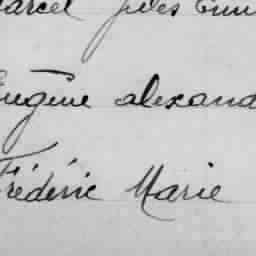 Marcel Jules Emi
Eugène alexand
Frédéric Marie